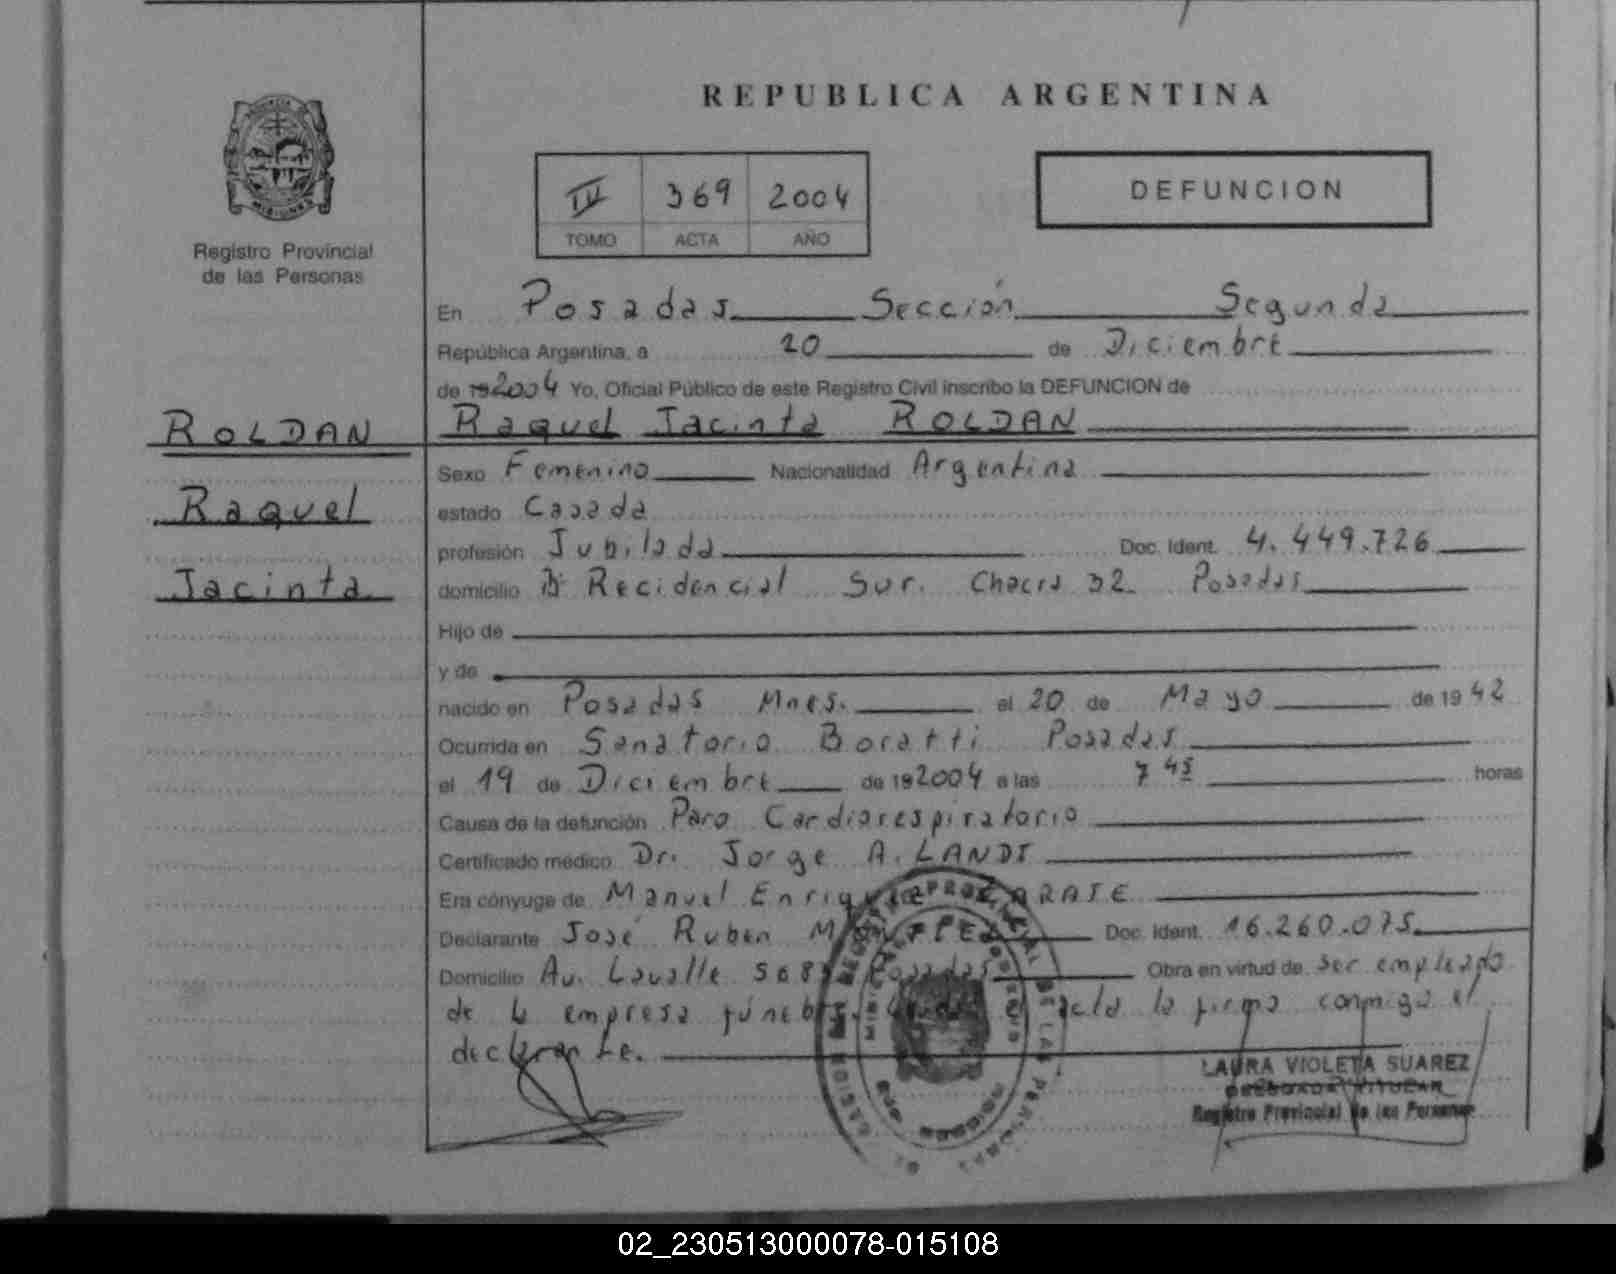 REPUBLICA ARGENTINA
MISIONES
Registro Provincial
de las Personas
IV 369 2004
TOMO ACTA AÑO
DEFUNCION
En Posadas Sección Segunda
República Argentina, a 20 de Diciembre
de 192004 Yo, Oficial Público de este Registro Civil inscribo la DEFUNCION de
Raquel Jacinta ROLDAN
ROLDAN
Raquel
Jacinta
Sexo Femenino Nacionalidad Argentina
estado Casada
profesión Jubilada Doc. Ident. 4.449.726
domicilio Bº Recidencial Sur. Chacra 32 Posadas
Hijo de
y de
nacido en Posadas Mnes. el 20 de Mayo de 1942
Ocurrida en Sanatorio Boratti Posadas
el 19 de Diciembre de 192004 a las 7 45 horas
Causa de la defunción Paro Cardiorespiratorio
Certificado médico Dr. Jorge A. LANDI
Era cónyuge de Manuel Enrique ZARATE
Declarante José Ruben Doc. Ident. 16.260.075
Domicilio Av. Lavalle Posadas Obra en virtud de ser empleado
de la empresa fúnebre. acta la firma conmigo el
declarante.
LAURA VIOLETA SUAREZ
DELEGADA TITULAR
Registro Provincial de las Personas
02_230513000078-015108